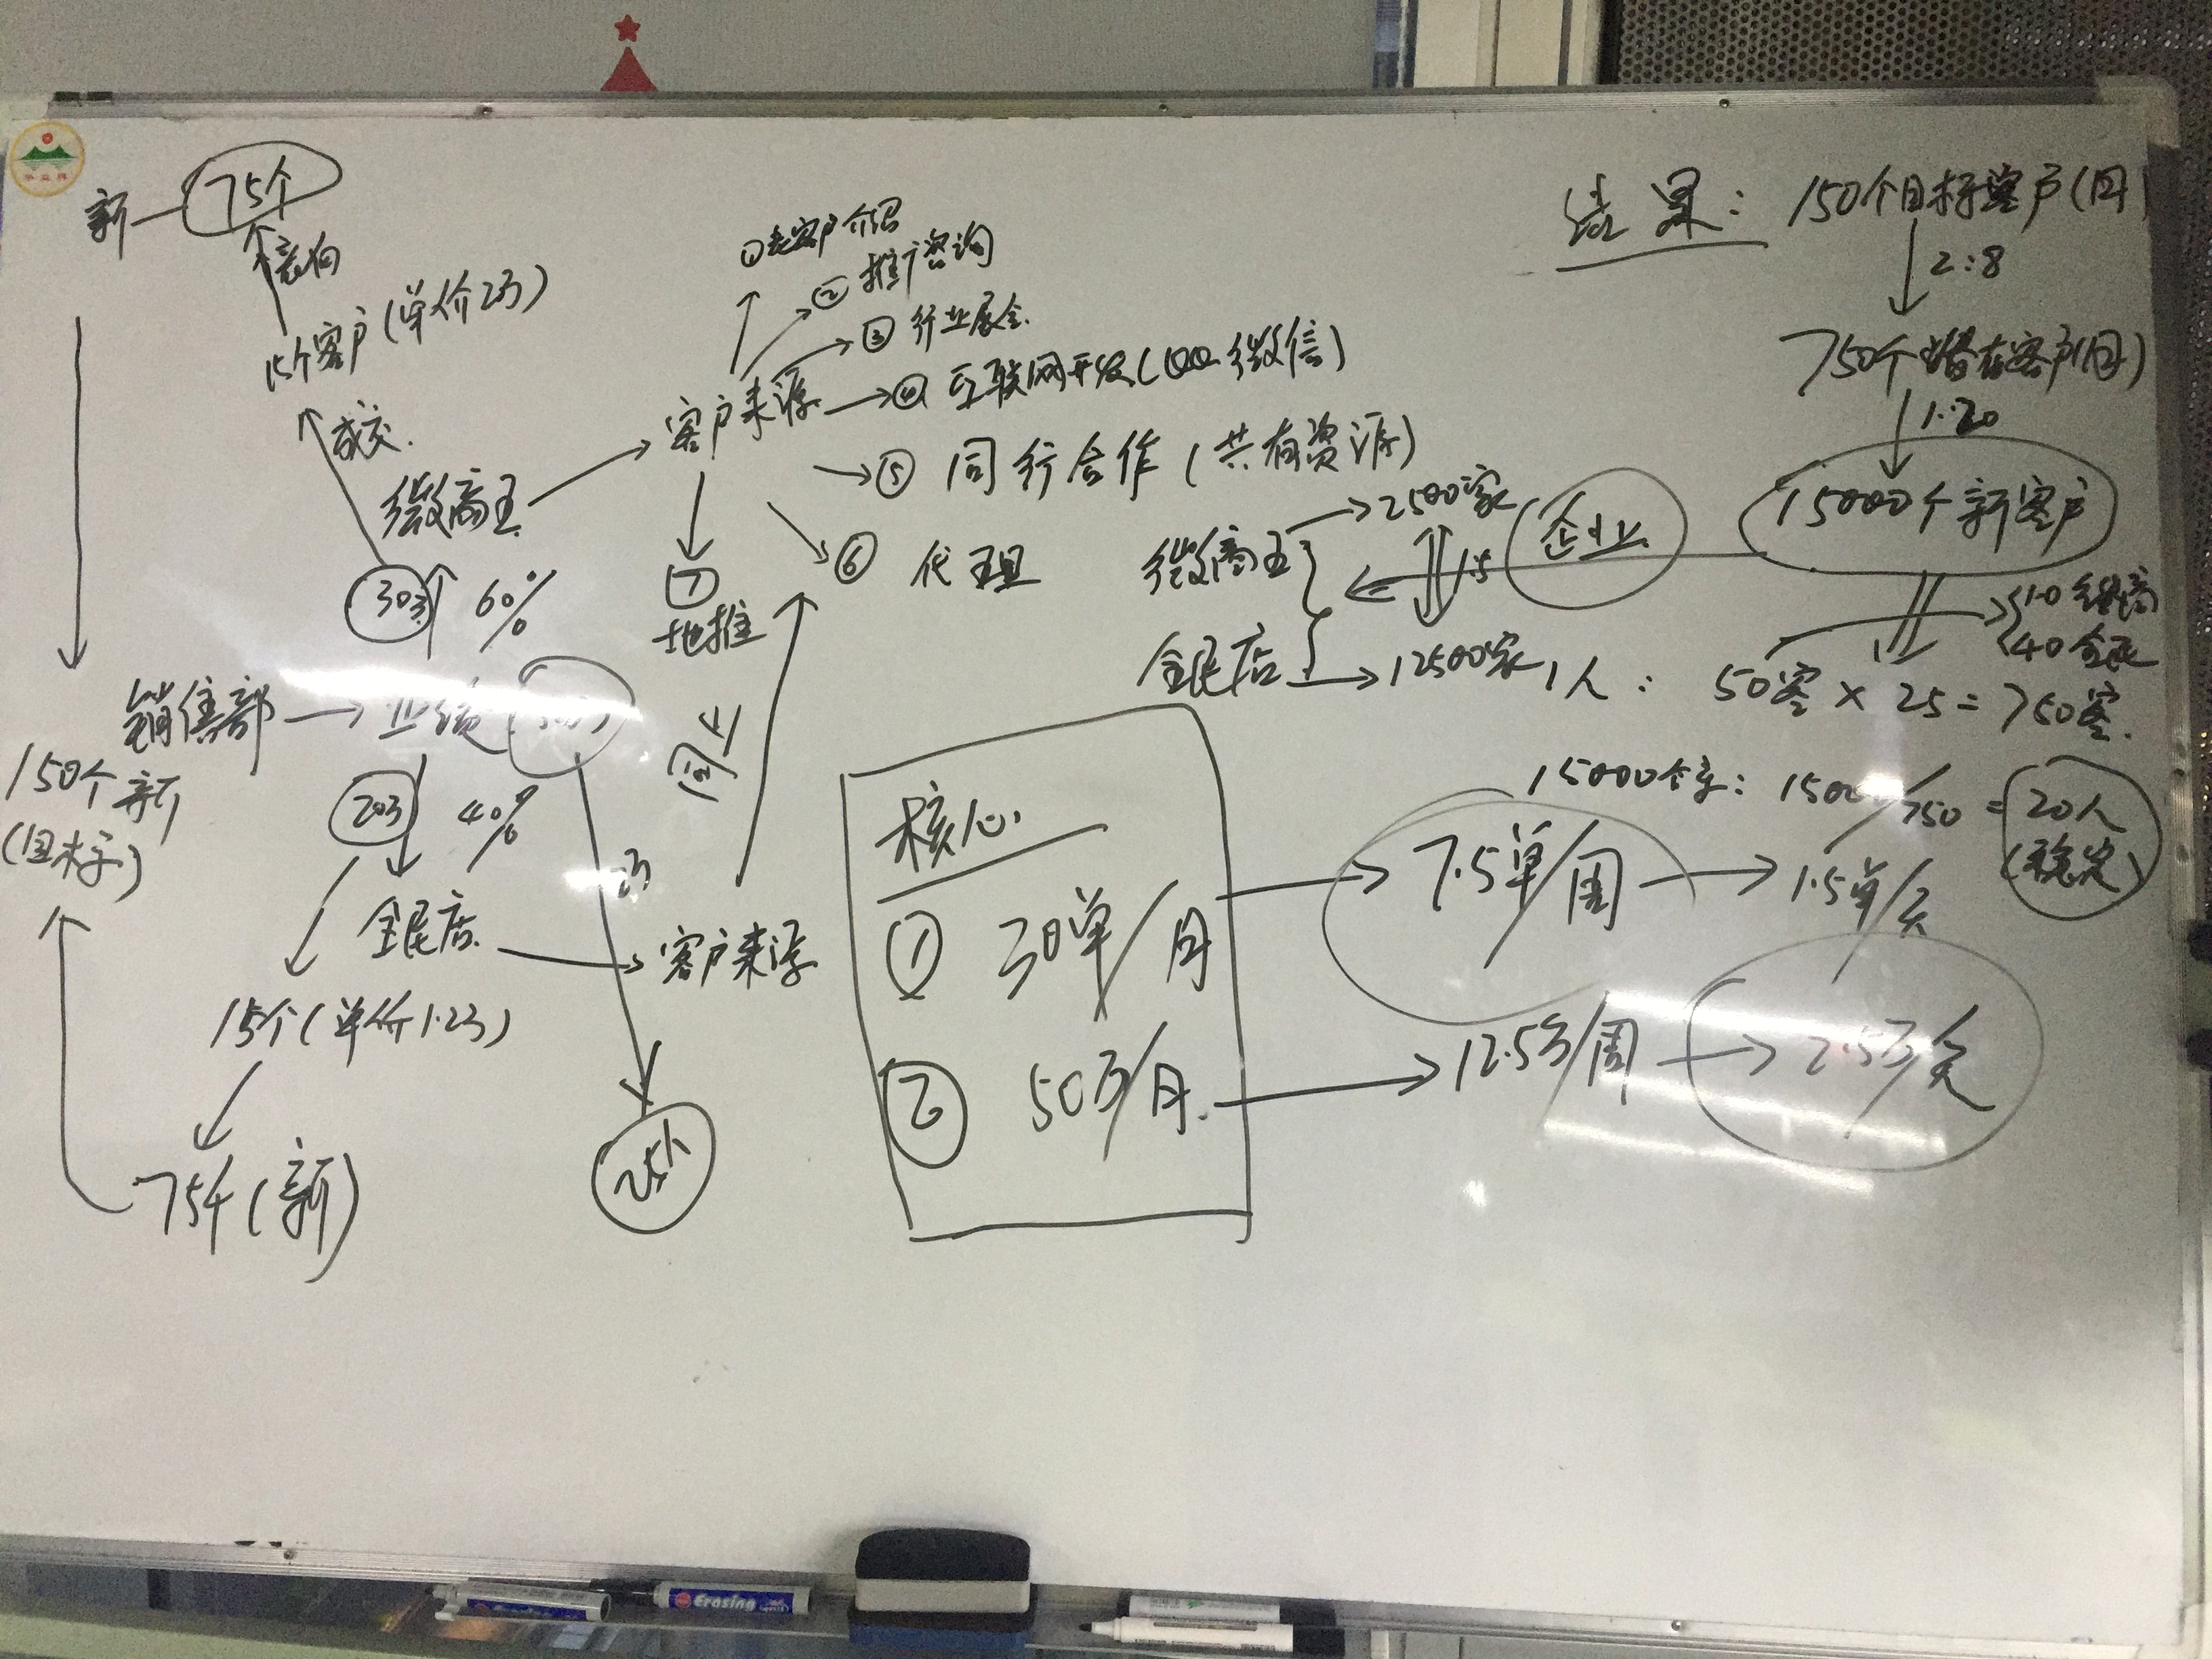 新 75个
意向
15个客户(单价2万)
成交
微商王
30万 60%
销售部 → 业绩
150个新
(目标)
20万 40%
全民店
15个(单价1.2万)
75个(新)
2万
25个
客户来源
①老客户介绍
②推广咨询
③行业展会
④互联网开发(QQ 微信)
⑤同行合作(共有资源)
⑥代理
⑦地推
同上
客户来源
核心
① 30单/月
② 50万/月
7.5单/周
1.5单/天
12.5万/周
2.5万/天
结果: 150个目标客户(月)
2:8
750个潜在客户(月)
1:20
15000个新客户
企业
微商王 → 2500家
1:5
全民店 → 12500家
40全民
1人: 50客 × 25 = 750客
15000个客: 15000/750 = 20人
(稳定)
Erasing